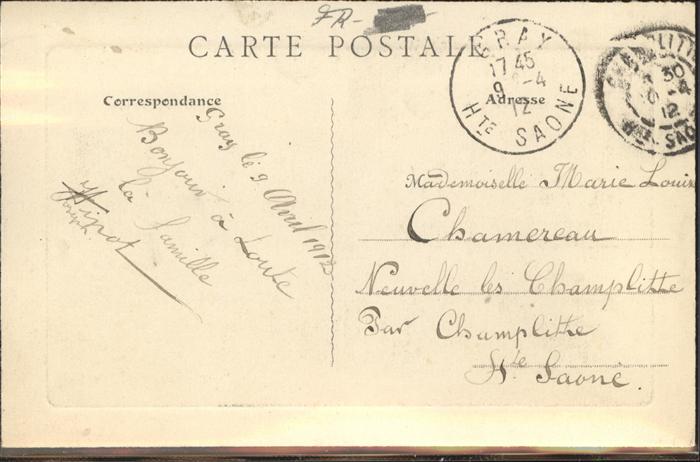 FR-
CARTE POSTALE
GRAY
17 45
9 -4
12
HTE SAONE
30
4
12
Correspondance
Adresse
Gray le 9 Avril 1912
Bonjour à toute
la famille
Mademoiselle Marie Louise
Chamereau
Neuvelle les Champlitte
Par Champlitte
Hte Saone.